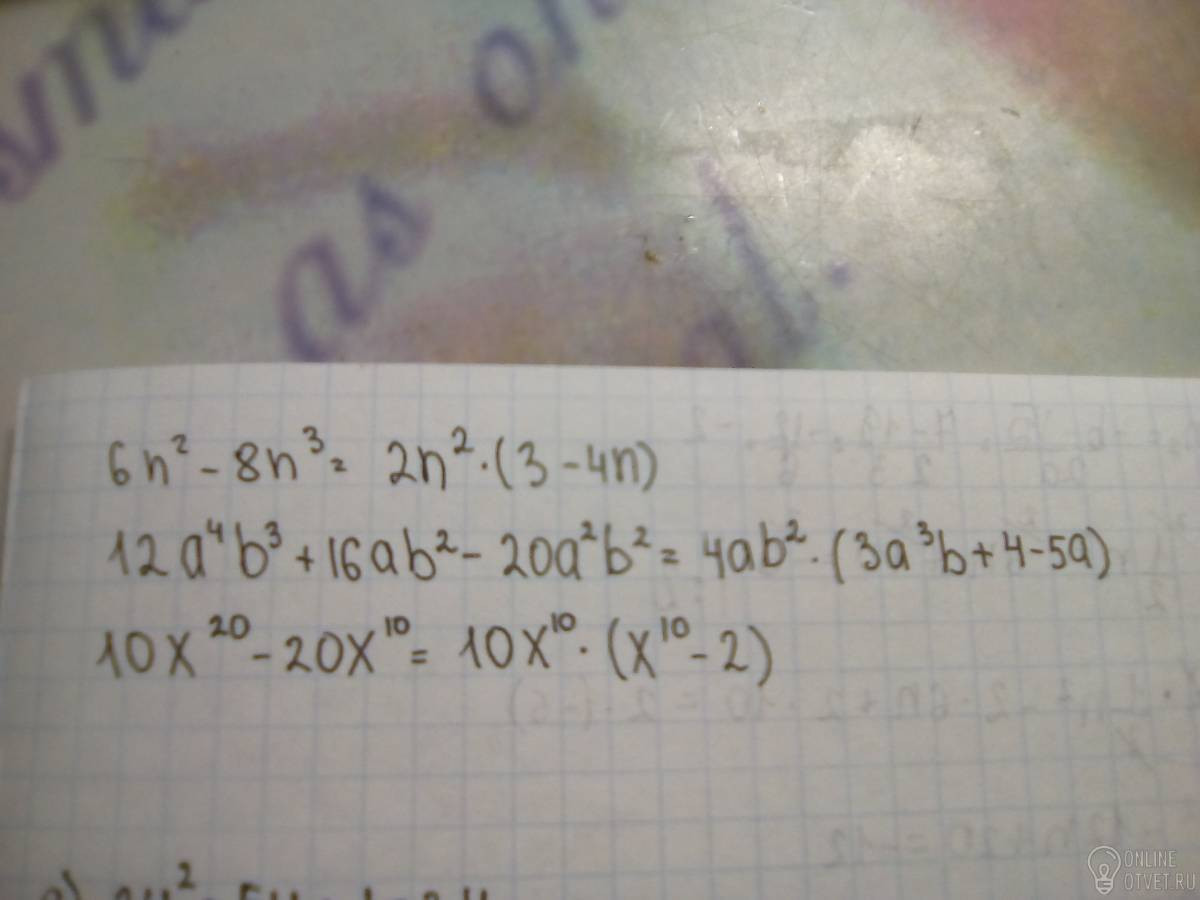 as
6n² - 8n³ = 2n² · (3 - 4n)
12a⁴b³ + 16ab² - 20a²b² = 4ab² · (3a³b + 4 - 5a)
10x²⁰ - 20x¹⁰ = 10x¹⁰ · (x¹⁰ - 2)
ONLINE
OTVET.RU